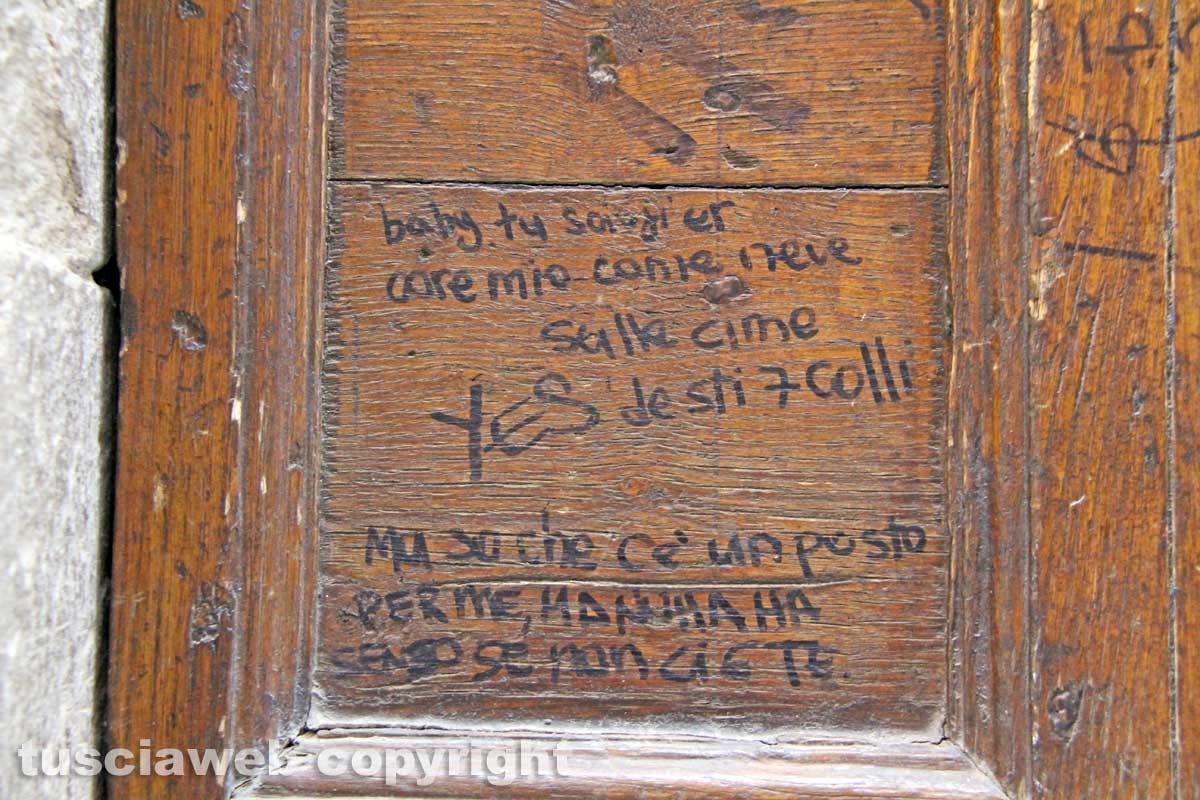 baby tu scioji er
core mio come neve
sulle cime
YES de sti 7 colli
Ma so che c'è un posto
PER ME, MA NUN HA
SENSO SE non CI SE TE.
tusciaweb copyright